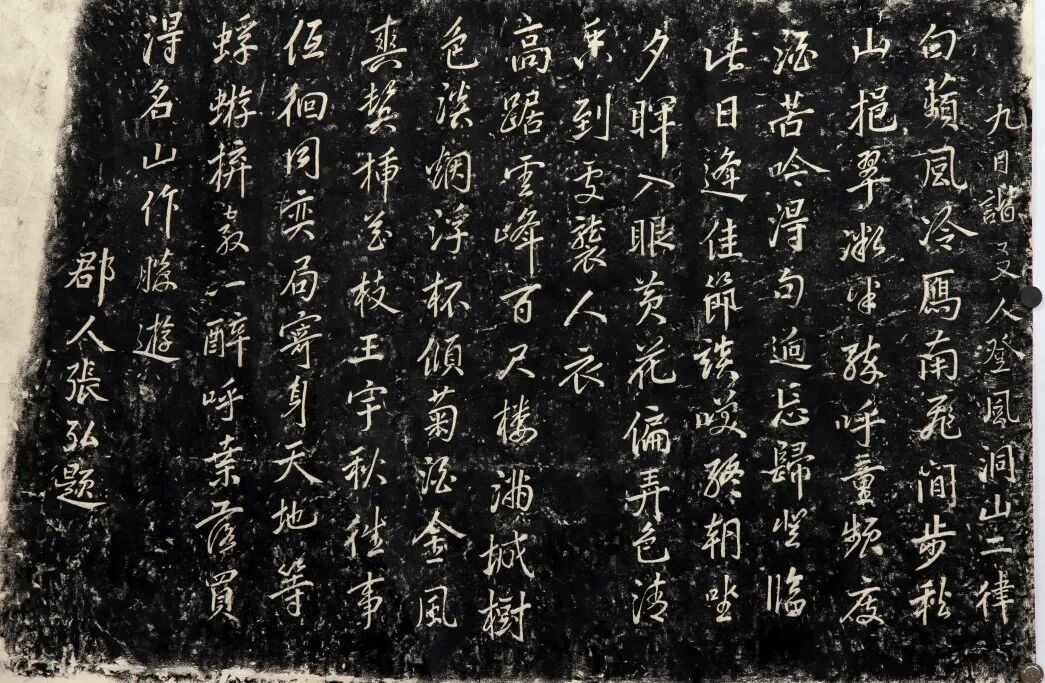 九日諧友人登風洞山二律
白蘋風冷鴈南飛閒步秋
山挹翠微半呼童頻度
酒苦吟得句迥忘歸登臨
此日逢佳節談笑終朝坐
夕暉入眼黄花偏弄色清
香到處襲人衣
高踞雲峰百尺樓滿城樹
色淡烟浮杯傾菊酒金風
爽鬢插花枝玉宇秋往事
低徊同奕局寄身天地等
蜉蝣拚教一醉呼葉落買
得名山作勝遊
郡人張弘題